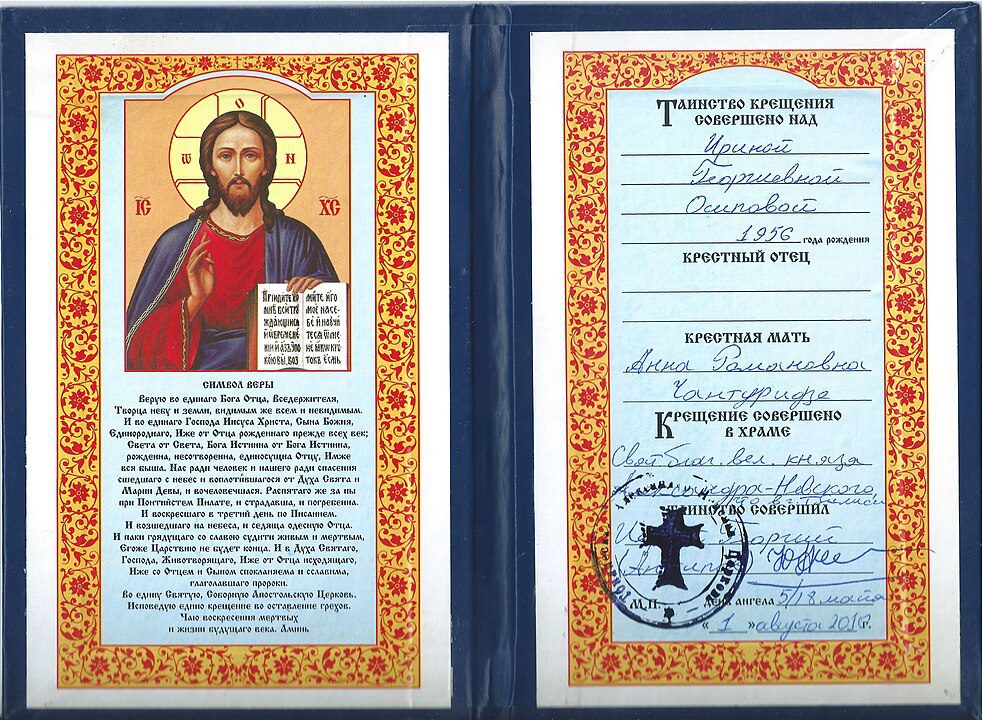 О
Ѿ Н
ІС ХС
СИМВОЛ ВЕРЫ
Верую во единаго Бога Отца, Вседержителя,
Творца небу и земли, видимым же всем и невидимым.
И во единаго Господа Иисуса Христа, Сына Божия,
Единороднаго, Иже от Отца рожденнаго прежде всех век;
Света от Света, Бога Истинна от Бога Истинна,
рожденна, несотворенна, единосущна Отцу, Имже
вся быша. Нас ради человек и нашего ради спасения
сшедшаго с небес и воплотившагося от Духа Свята и
Марии Девы, и вочеловечшася. Распятаго же за ны
при Понтийстем Пилате, и страдавша, и погребенна.
И воскресшаго в третий день по Писанием.
И возшедшаго на небеса, и седяща одесную Отца.
И паки грядущаго со славою судити живым и мертвым,
Егоже Царствию не будет конца. И в Духа Святаго,
Господа, Животворящаго, Иже от Отца исходящаго,
Иже со Отцем и Сыном спокланяема и сславима,
глаголавшаго пророки.
Во едину Святую, Соборную Апостольскую Церковь.
Исповедую едино крещение во оставление грехов.
Чаю воскресения мертвых
и жизни будущаго века. Аминь
ТАИНСТВО КРЕЩЕНИЯ
СОВЕРШЕНО НАД
Ириной
Георгиевной
Осиповой
1956 года рождения
КРЕСТНЫЙ ОТЕЦ
КРЕСТНАЯ МАТЬ
Анна Романовна
Чантуридзе
КРЕЩЕНИЕ СОВЕРШЕНО
В ХРАМЕ
Свят. благ. вел. князя
Александра-Невского
ТАИНСТВО СОВЕРШИЛ
М.П. День ангела 5/18 мая
« 1 » августа 2010 г.